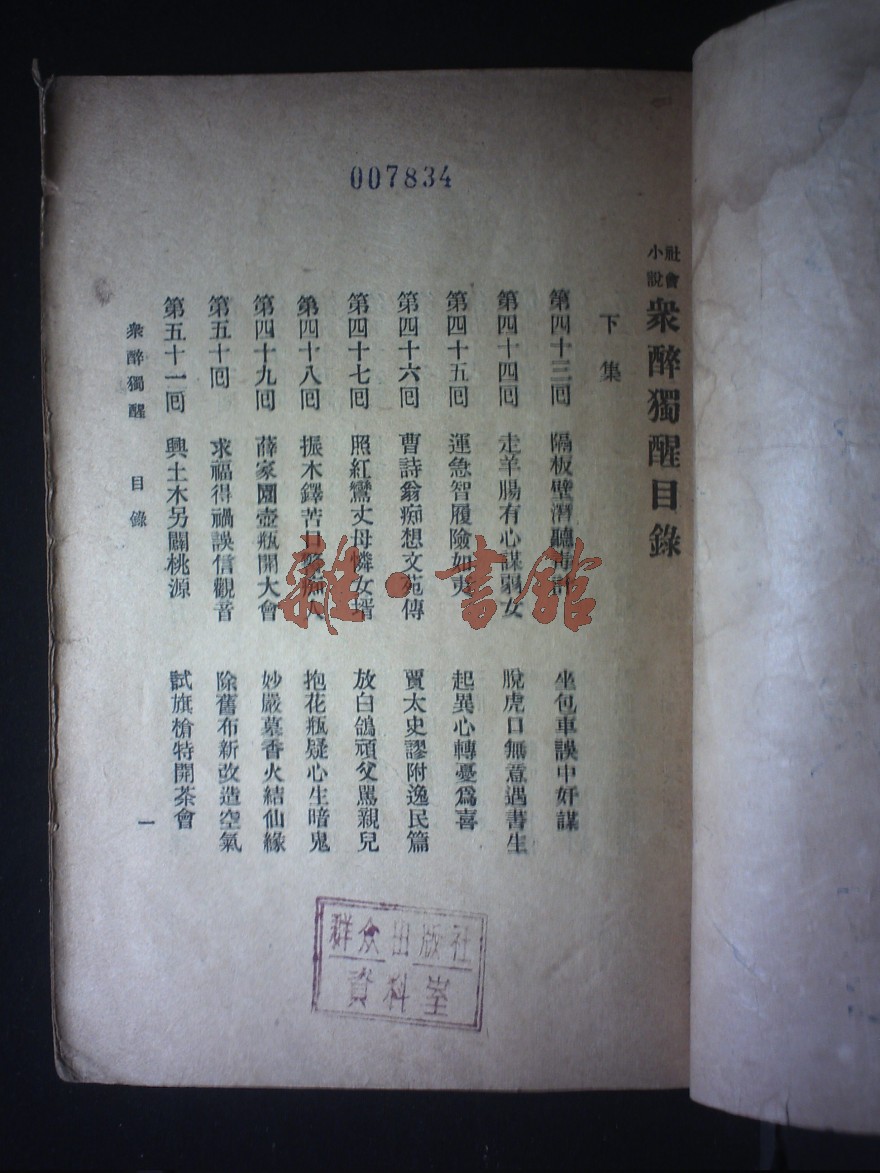 007834
社會小說 衆醉獨醒目錄
下集
第四十三回 隔板壁潛聽 坐包車誤中奸謀
第四十四回 走羊腸有心謀弱女 脫虎口無意遇書生
第四十五回 運急智履險如夷 起異心轉憂爲喜
第四十六回 曹詩翁痴想文苑傳 賈太史謬附逸民篇
第四十七回 照紅鸞丈母憐女壻 放白鴿頑父罵親兒
第四十八回 振木鐸苦口 抱花瓶疑心生暗鬼
第四十九回 薛家園壺瓶開大會 妙嚴墓香火結仙緣
第五十回 求福得禍誤信觀音 除舊布新改造空氣
第五十一回 興土木另闢桃源 試旗槍特開茶會
衆醉獨醒 目錄 一
雜·書館
群众出版社
資料室